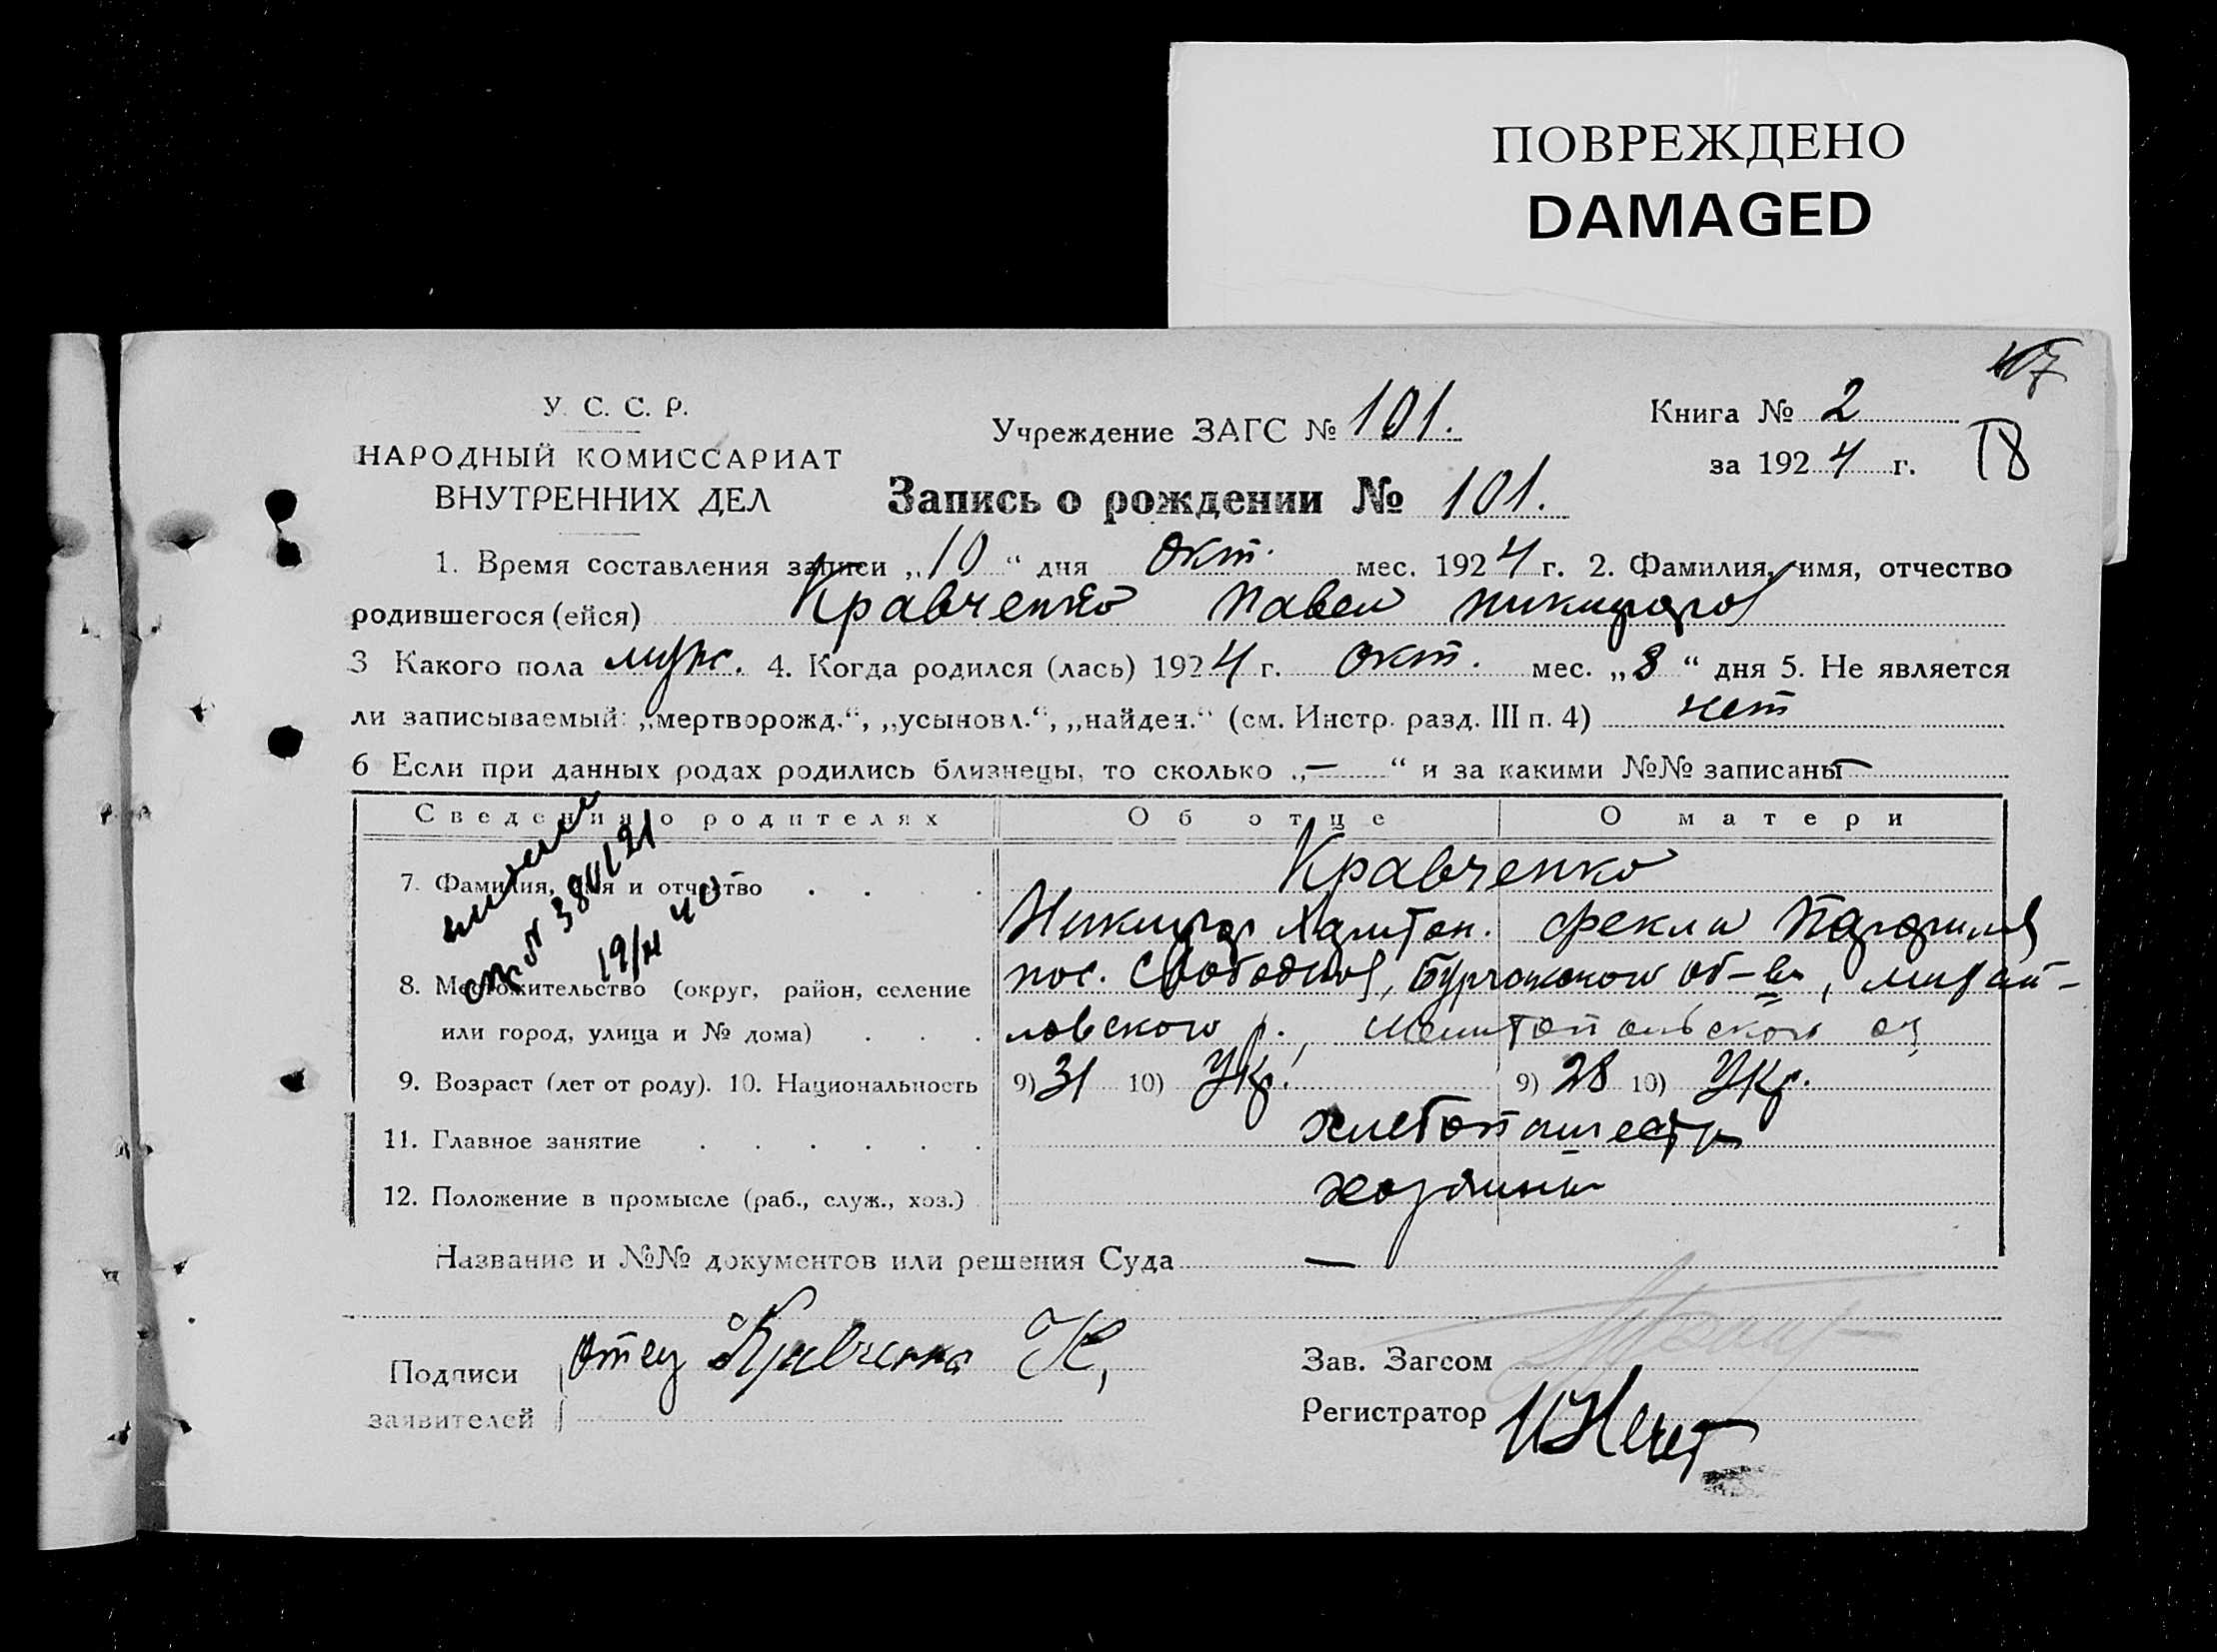 ПОВРЕЖДЕНО
DAMAGED
У. С. С. Р.
НАРОДНЫЙ КОМИССАРИАТ
ВНУТРЕННИХ ДЕЛ
Учреждение ЗАГС № 101.
Книга № 2
за 1924 г.
78
Запись о рождении № 101.
1. Время составления записи „10“ дня окт. мес. 1924 г. 2. Фамилия, имя, отчество
родившегося (ейся) Кравченко Павел Никифоров
3 Какого пола мужс. 4. Когда родился (лась) 1924 г. окт. мес. „8“ дня 5. Не является
ли записываемый: „мертворожд.“, „усыновл.“, „найден.“ (см. Инстр. разд. III п. 4) нет
6 Если при данных родах родились близнецы, то сколько „—“ и за какими №№ записаны —
Сведения о родителях Об отце О матери
7. Фамилия, имя и отчество . . . . Кравченко
Никифор Харитон. Фекла
8. Местожительство (округ, район, селение пос. Свободный, Бурчакской об-ва, Михай-
или город, улица и № дома) . . . ловского р., Мелитопольского ок
9. Возраст (лет от роду). 10. Национальность 9) 31 10) Укр. 9) 28 10) Укр.
11. Главное занятие . . . . . хлебопашество
12. Положение в промысле (раб., служ., хоз.) хозяины
Название и №№ документов или решения Суда —
Подписи отец Кравченко Н,
заявителей
Зав. Загсом
Регистратор